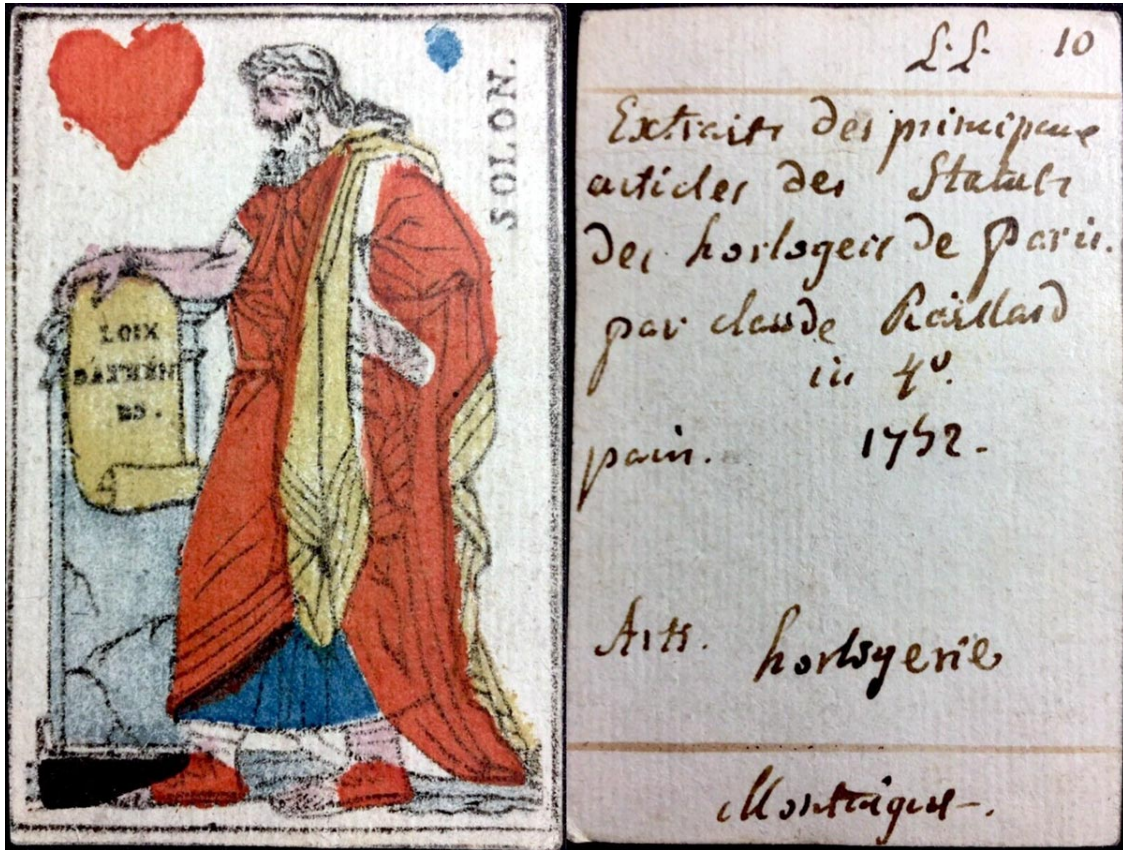 SOLON.
LOIX
L.L. 10
Extraits des principaux
articles des Statuts
des horlogers de paris.
par claude Raillard
in 4º.
paris. 1752.
Arts. horlogerie
Montaigut.